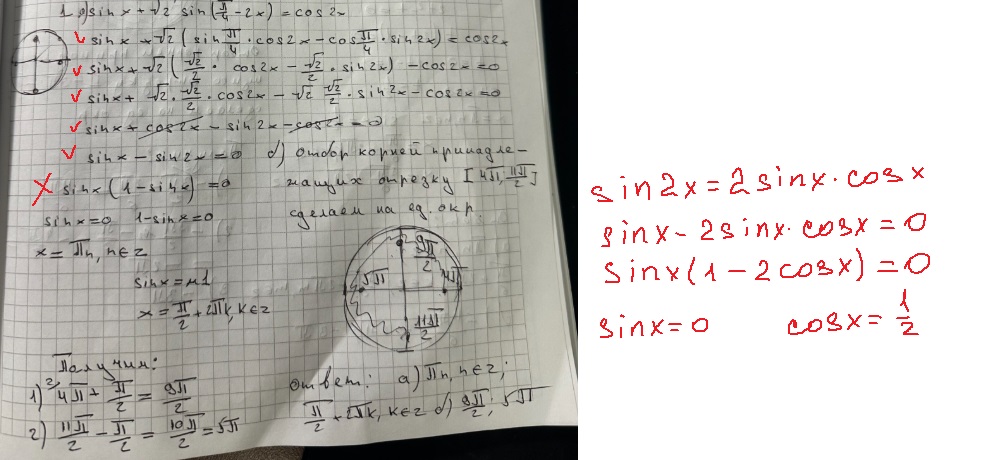 1. а) sinx + √2 sin(π/4 - 2x) = cos2x
sinx + √2 ( sin π/4 · cos2x - cos π/4 · sin2x) = cos2x
sinx + √2 ( √2/2 · cos2x - √2/2 · sin2x) - cos2x = 0
sinx + √2 · √2/2 · cos2x - √2 √2/2 · sin2x - cos2x = 0
sinx + cos2x - sin2x - cos2x = 0
sinx - sin2x = 0
sinx (1 - sinx) = 0
sinx = 0 1 - sinx = 0
x = πn, n∈z
sinx = 1
x = π/2 + 2πk, k∈z
б) отбор корней принадле-
жащих отрезку [4π, 11π/2]
сделаем на ед. окр.
9π/2
5π 4π
11π/2
Получим:
1) 4π + π/2 = 9π/2
2) 11π/2 - π/2 = 10π/2 = 5π
ответ: а) πn, n∈z;
π/2 + 2πk, k∈z б) 9π/2; 5π
sin2x = 2sinx · cosx
sinx - 2sinx · cosx = 0
sinx (1 - 2cosx) = 0
sinx = 0 cosx = 1/2